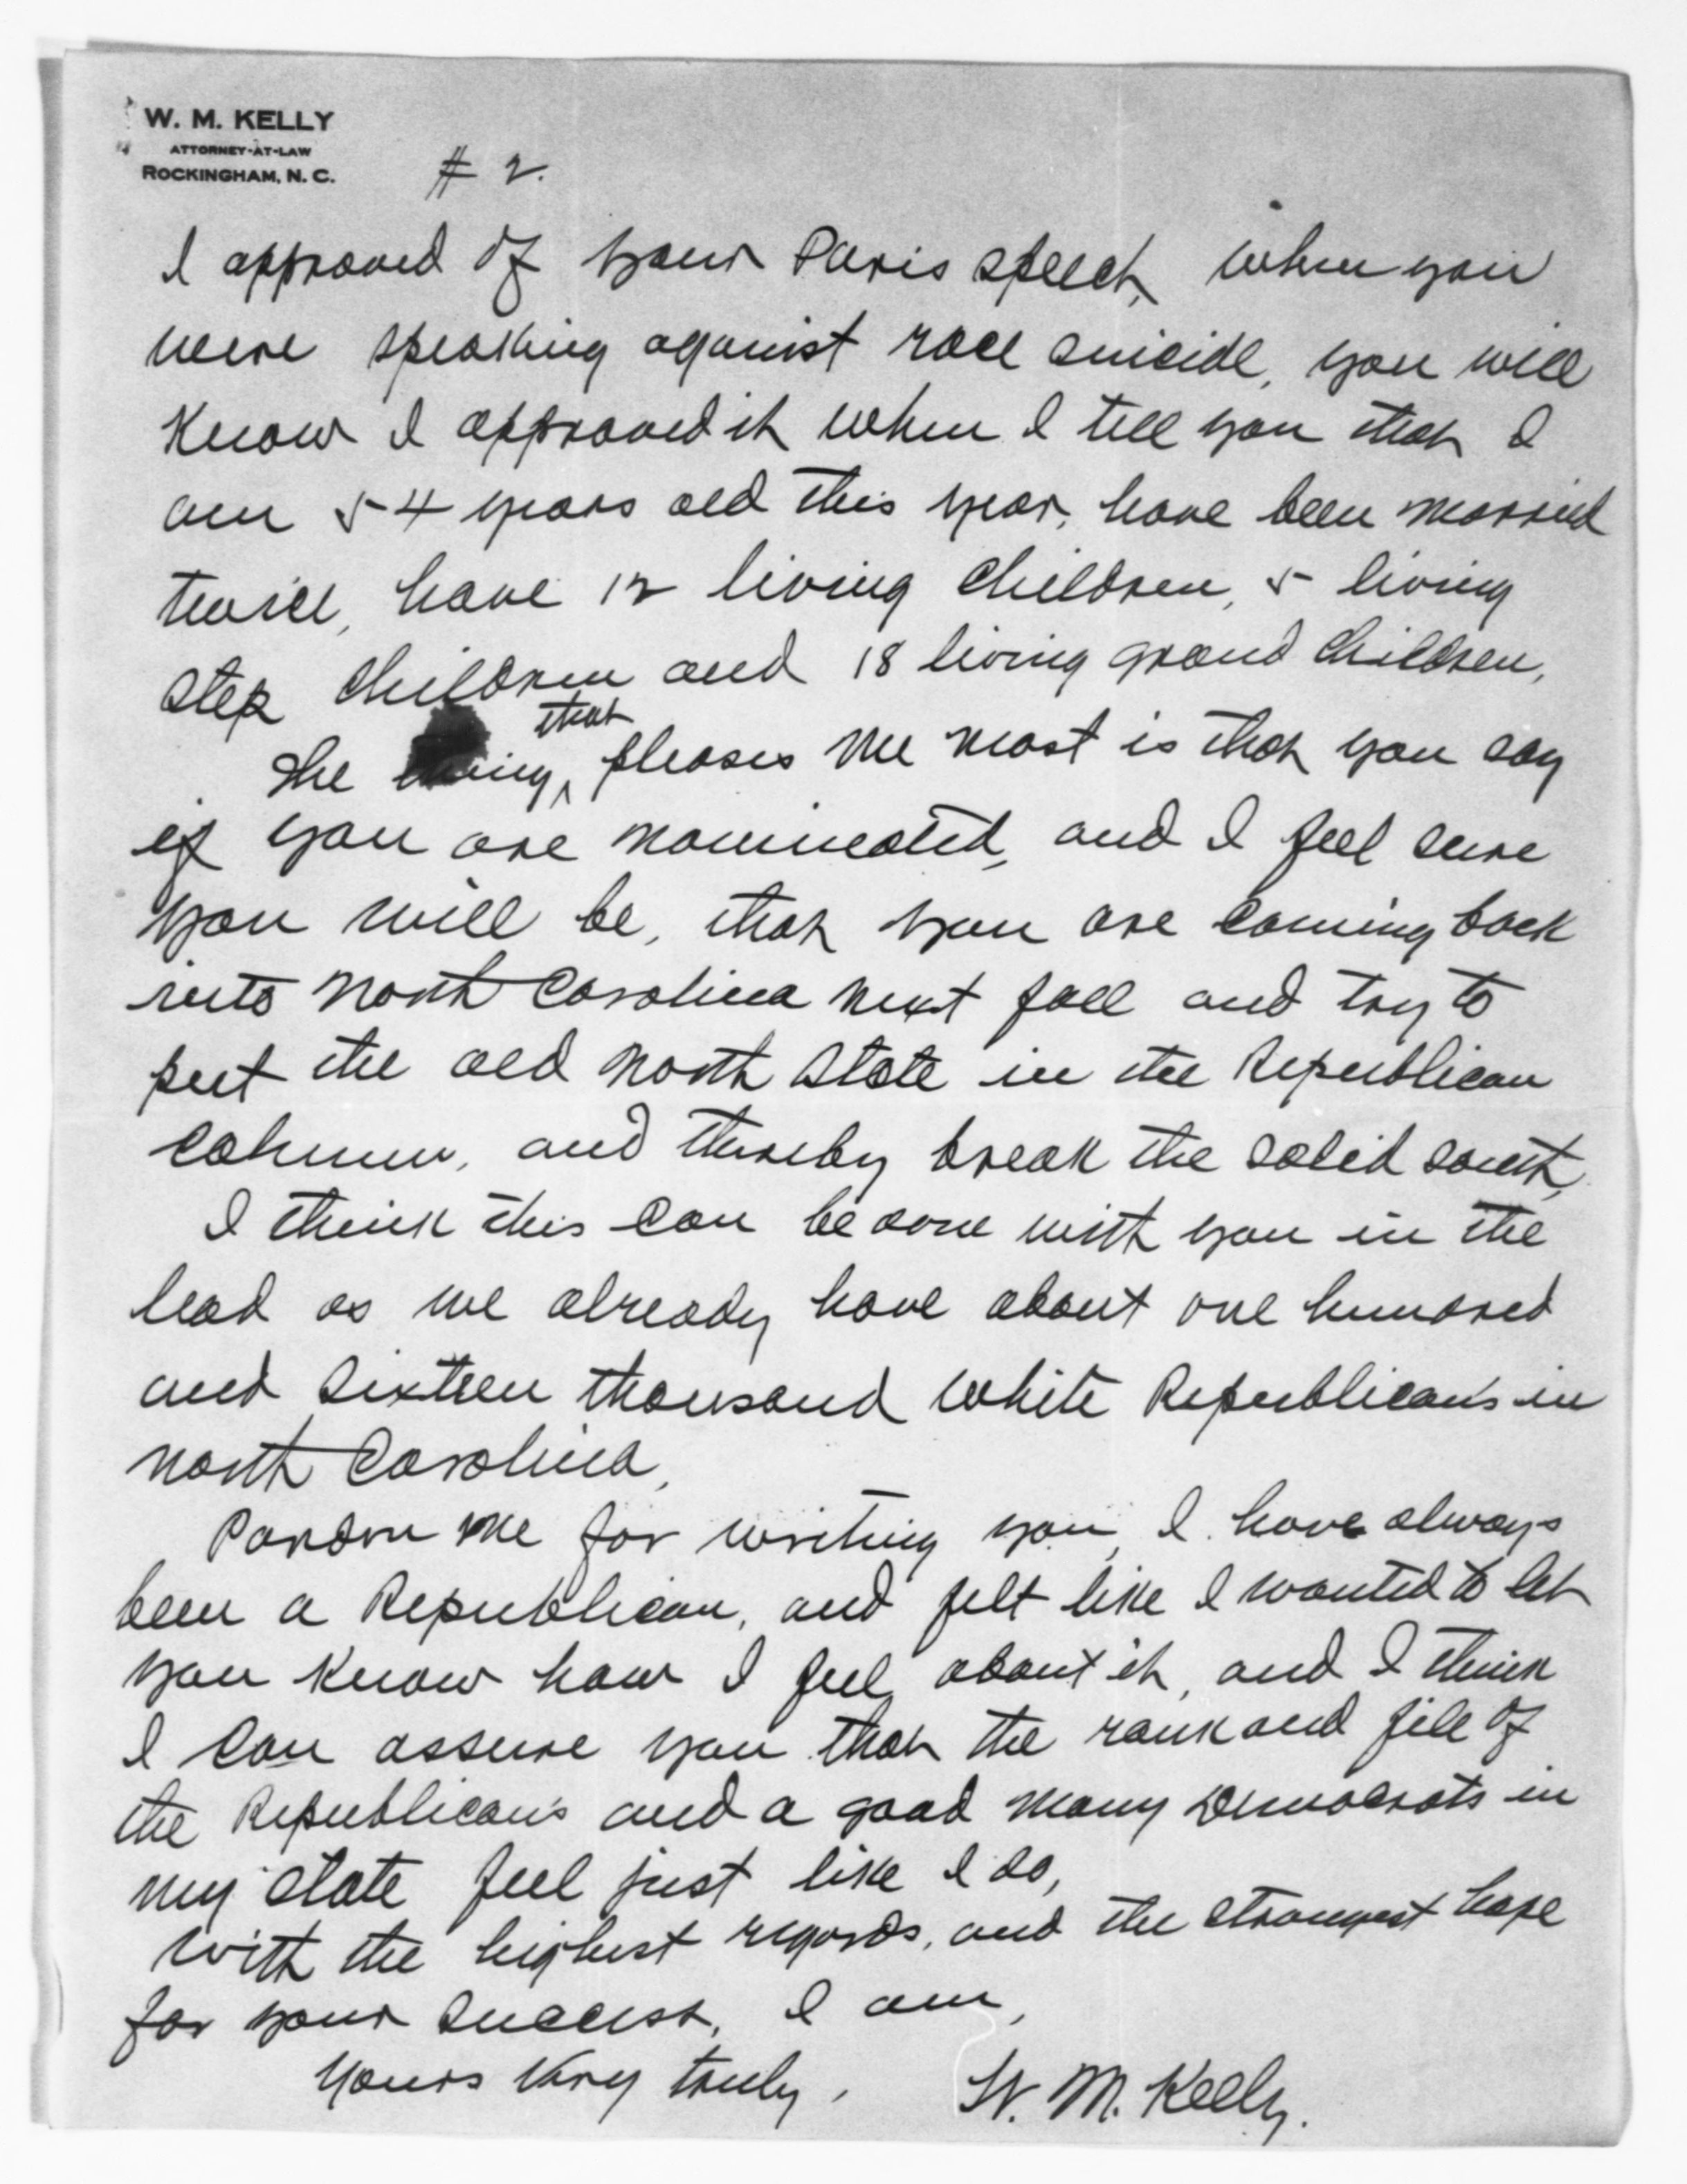 W. M. KELLY
ATTORNEY-AT-LAW
ROCKINGHAM, N. C.
# 2.
I approved of your Paris speech, when you
were speaking against race suicide, you will
know I approved it when I tell you that I
am 54 years old this year, have been married
twice, have 12 living children, 5 living
step children and 18 living grand children,
The thing that pleases me most is that you say
if you are nominated, and I feel sure
you will be, that you are coming back
into North Carolina next fall and try to
put the old North State in the Republican
column, and thereby break the solid south,
I think this can be done with you in the
lead as we already have about one hundred
and sixteen thousand white Republican's in
North Carolina,
Pardon me for writing you, I have always
been a Republican, and felt like I wanted to let
you know how I feel about it, and I think
I can assure you that the rank and file of
the Republican's and a good many Democrats in
my state feel just like I do,
With the highest regards, and the strongest hope
for your success, I am,
Yours very truly, W. M. Kelly.